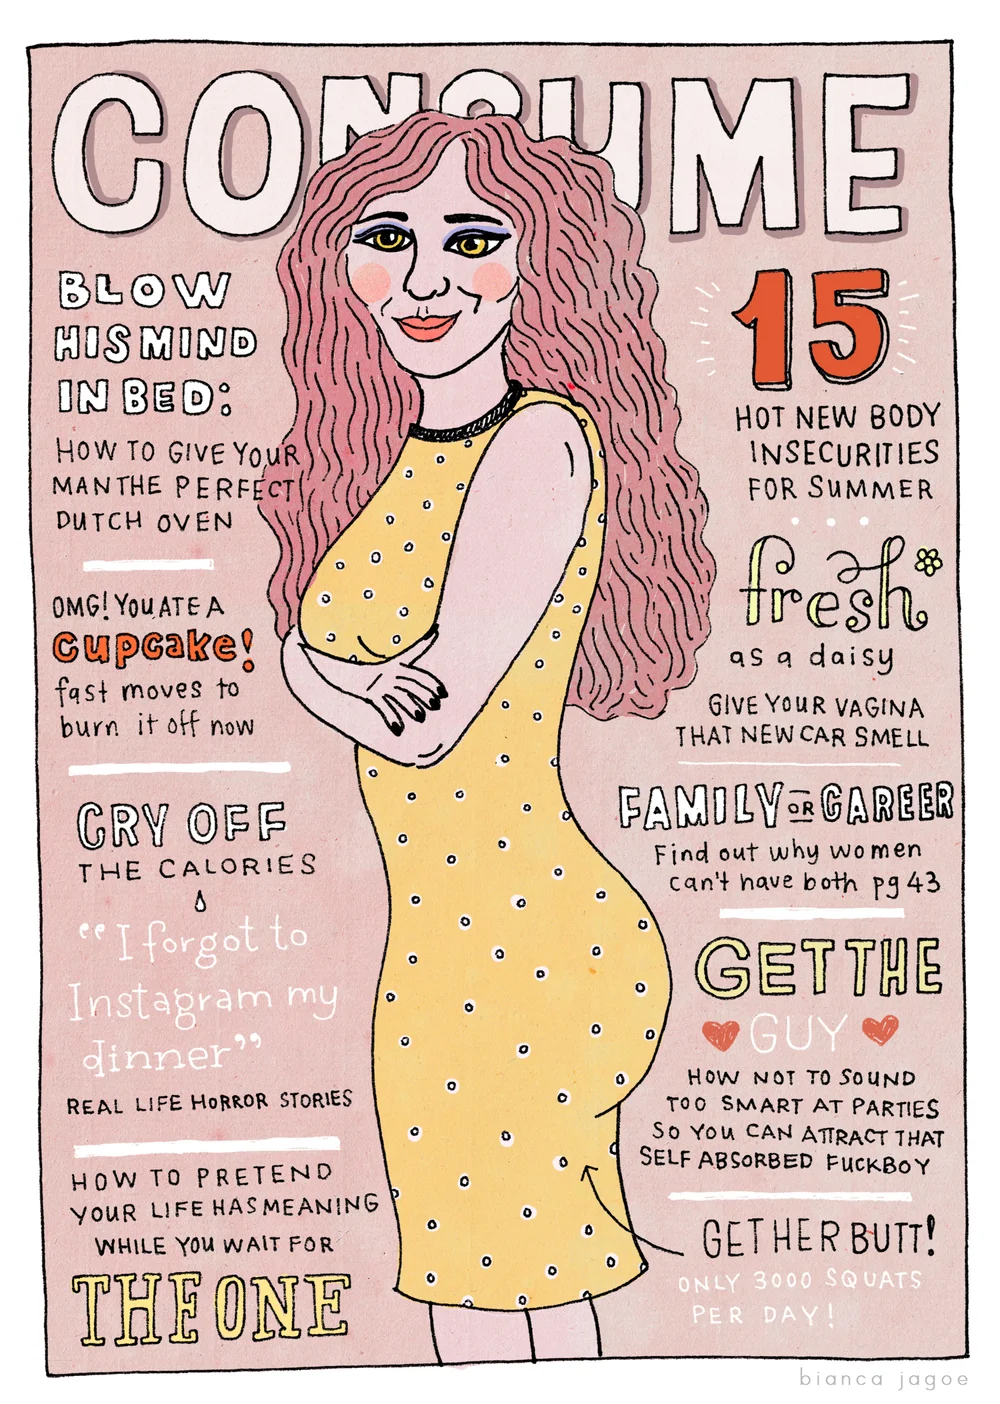 CONSUME
BLOW
HIS MIND
IN BED:
HOW TO GIVE YOUR
MAN THE PERFECT
DUTCH OVEN
OMG! YOU ATE A
cupcake!
fast moves to
burn it off now
CRY OFF
THE CALORIES
“I forgot to
Instagram my
dinner”
REAL LIFE HORROR STORIES
HOW TO PRETEND
YOUR LIFE HAS MEANING
WHILE YOU WAIT FOR
THE ONE
15
HOT NEW BODY
INSECURITIES
FOR SUMMER
fresh
as a daisy
GIVE YOUR VAGINA
THAT NEW CAR SMELL
FAMILY OR CAREER
Find out why women
can't have both pg 43
GET THE
GUY
HOW NOT TO SOUND
TOO SMART AT PARTIES
SO YOU CAN ATTRACT THAT
SELF ABSORBED FUCKBOY
GET HER BUTT!
ONLY 3000 SQUATS
PER DAY!
bianca jagoe